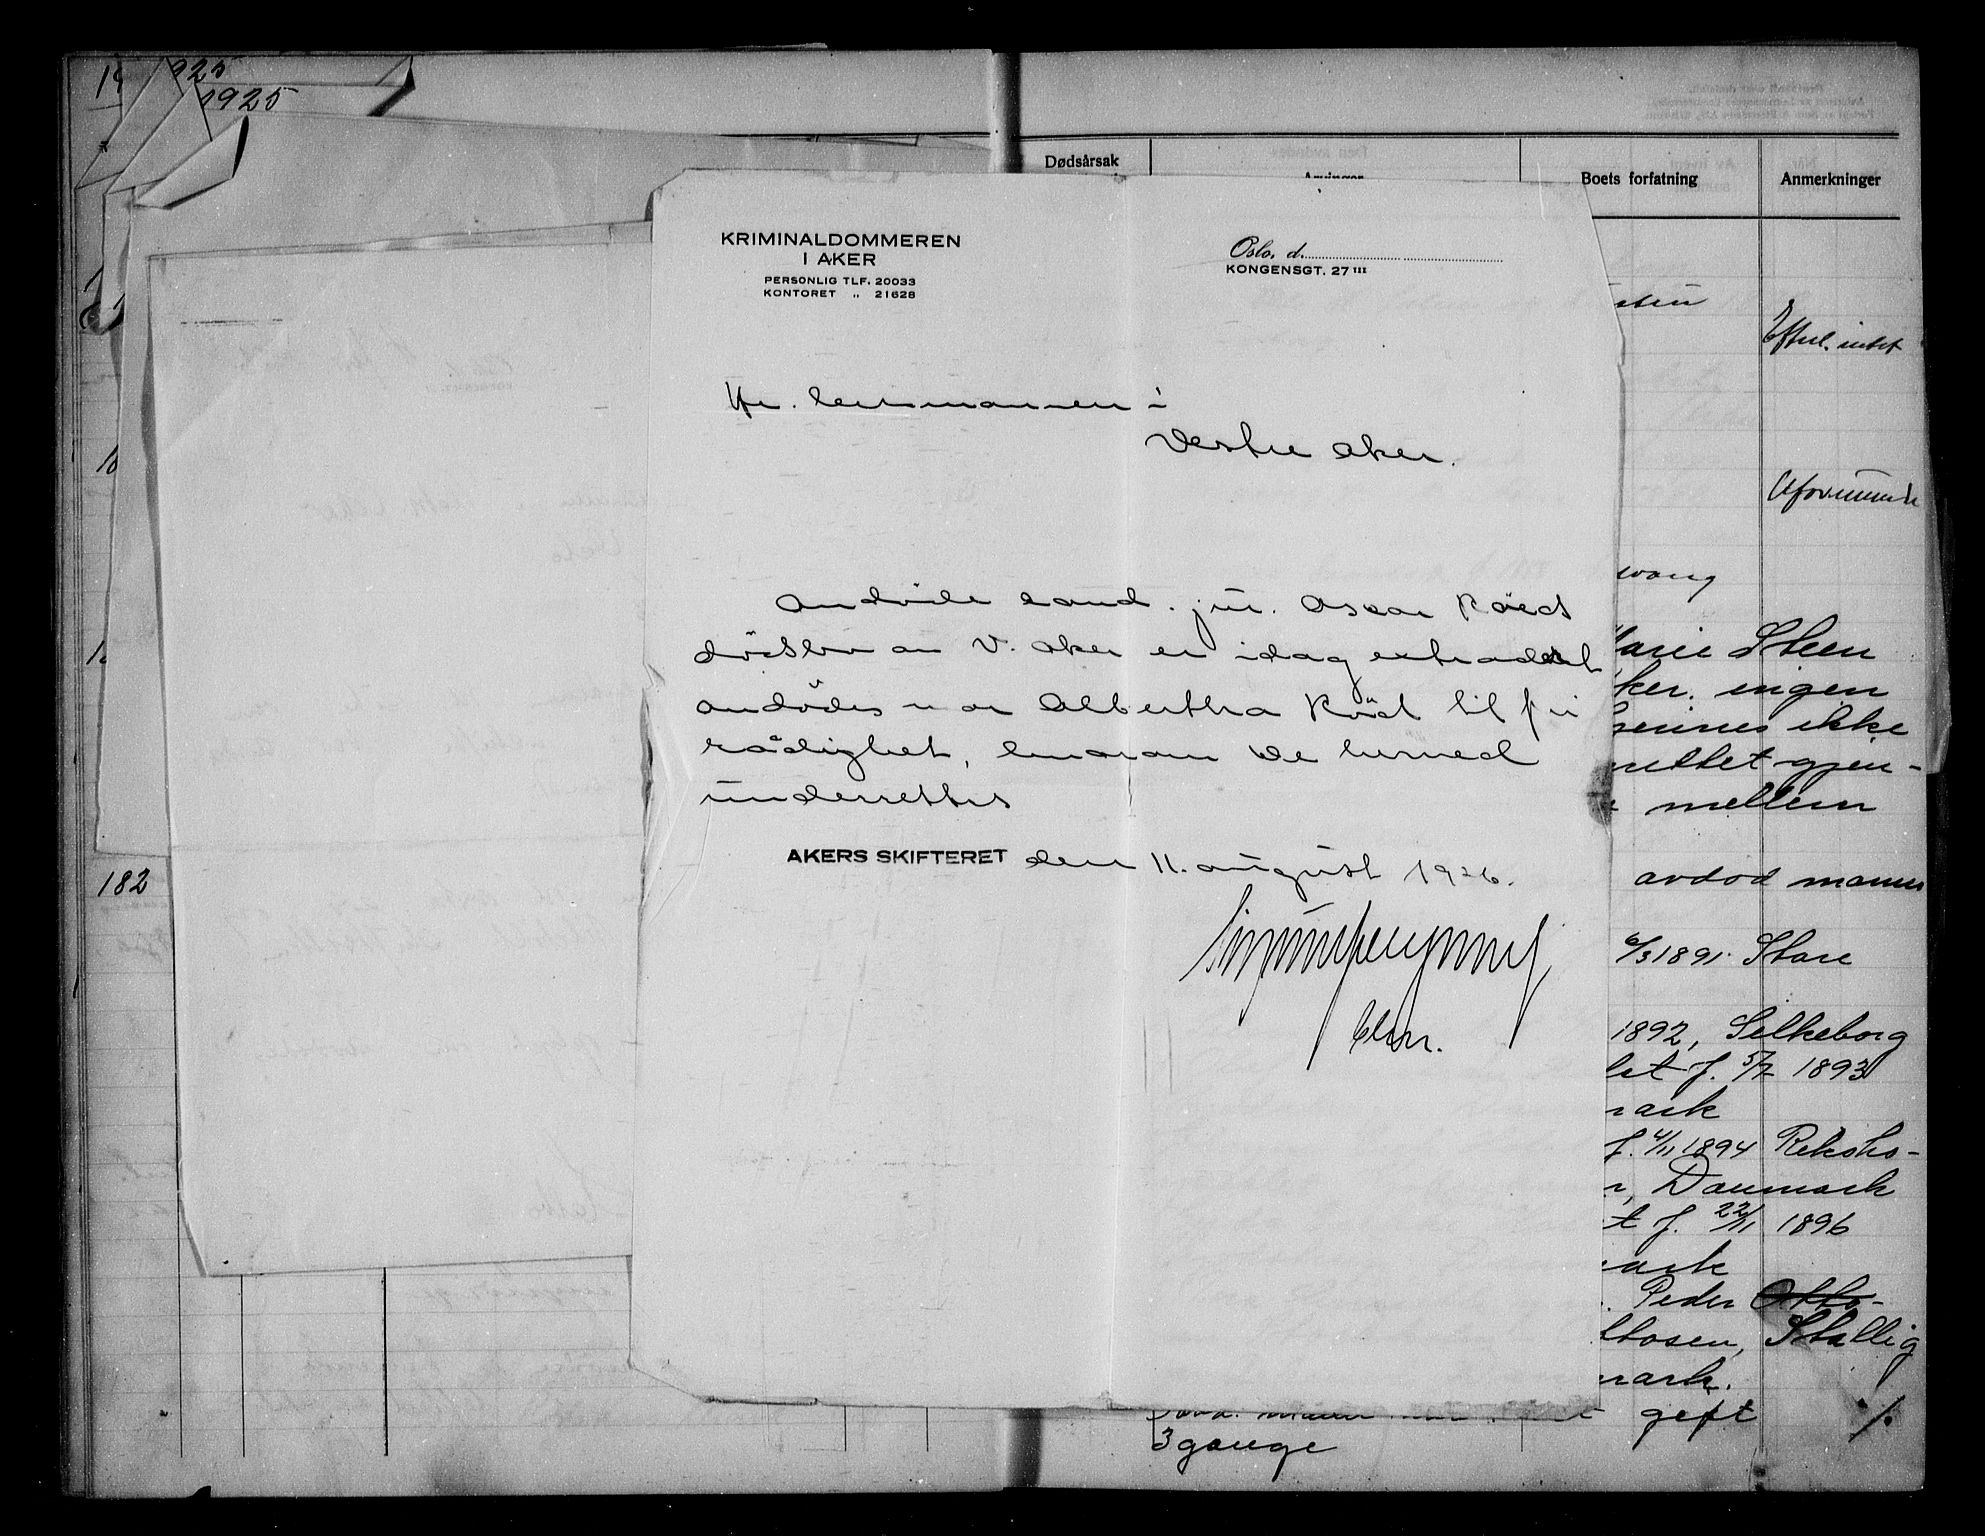 1925
1925
182
Dødsårsak
Arvinger
Boets forfatning
Anmerkninger
KRIMINALDOMMEREN
I AKER
PERSONLIG TLF. 20033
KONTORET „ 21628
Oslo, d.
KONGENSGT. 27 III
Hr. lensmannen i
Vestre Aker.
Avdøde cand. jur. Oscar Røeds
dødsbo av V. Aker er idag extradert
avdødes mor Albertha Röd til fri
rådighet, hvorom De herved
underrettes
AKERS SKIFTERET den 11. august 1926.
Eftul. intet
Uformuende
vang
Marie Steen
ker. ingen
hennes ikke
mellem
avdød manns
6/3 1891. Stare
1892, Silkeborg
let f. 5/7 1893
mark
f. 4/11 1894 Reksho-
r, Danmark
t f. 22/11 1896
mark
. Peder Otto-
ttosen, Stallig
mark.
gift ./.
3 gange